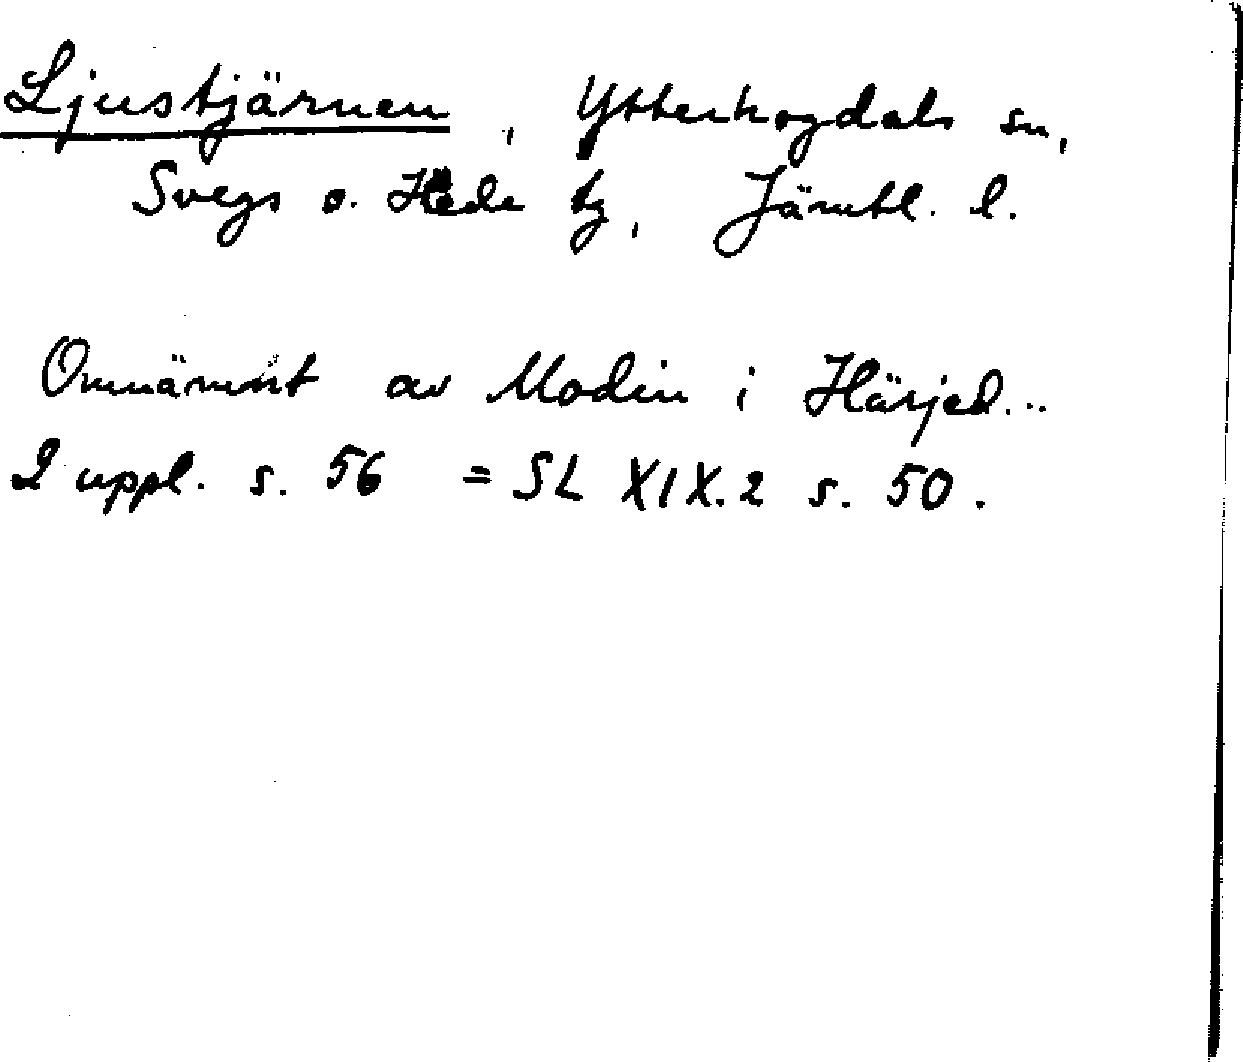 Ljustjärnen, Ytterhogdals sn,
Svegs o. Hede tg, Jämtl. l.
Omnämnt av Modin i Härjed...
2 uppl. s. 56 = SL XIX.2 s. 50.